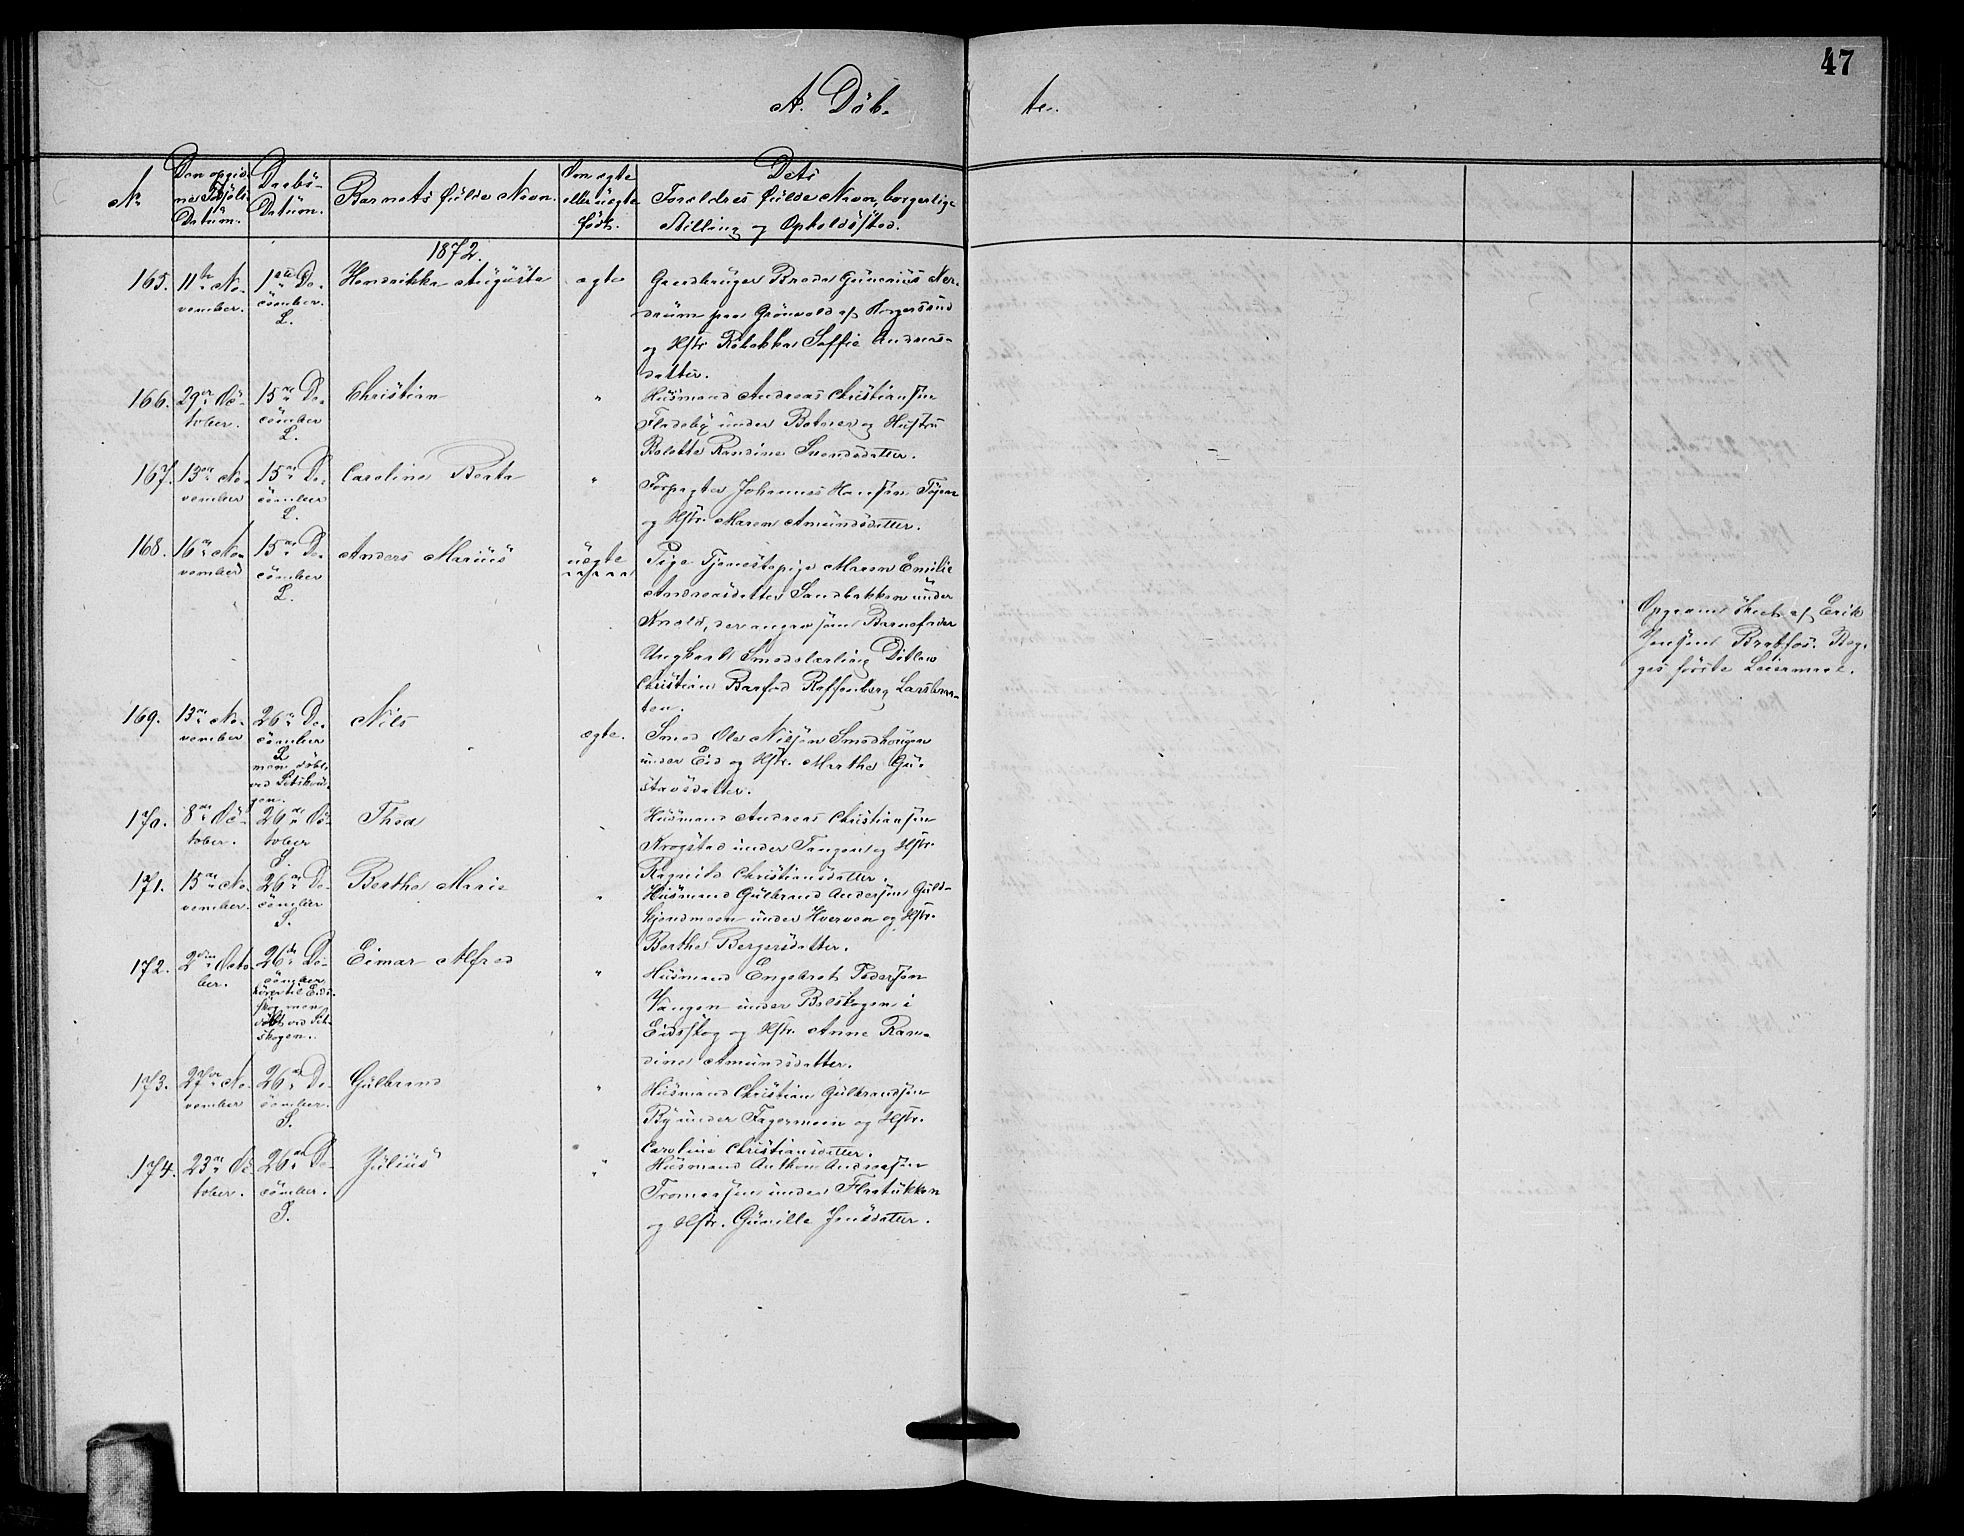 47
A. Döb-
te.
No
Den opgid
ne Födsels
Datum.
Daabs-
Datum.
Barnets fulde Navn.
Om ægte
eller uægte
født.
Dets
Forældres fulde Navn, borgerlige
Stilling og Opholdssted.
1872.
165. 11te No-
vember.
1ste De-
cember.
L.
Hendrikka Augusta
ægte
Gaardbruger Brede Gunerius Ner-
drum paa Grönvold af
og Hstr. Rebekka Soffie Andreas-
datter.
166. 29de Oc-
tober.
15de De-
cember
L.
Christian
"
Husmand Andreas Christiansøn
Fladeby under Botner og Hustru
Bolette Randine Svendsdatter.
167. 13de No-
vember
15de De-
cember
L.
Caroline Beata
"
Forpagter Johannes Hansøn Töien
og Hstr. Maren Amundsdatter.
168. 16de No-
vember
15de De-
cember
L.
Anders Marius
uægte
Pige Tjenestepige Maren Emilie
Andreasdatter Sandbakken under
Knold, der angav som Barnefader
Ungkarl Smedelærling Ditlev
Christian Barfod Raffenberg Larsbra-
ten.
Opgivne Skeet af Erik
Jensen Bratfos. Beg-
ges første Leiermaal.
169. 13de No-
vember
26de De-
cember
L
men döbt
ved Setskou-
gen.
Nils
ægte.
Smed Ole Nilsøn Smedhougen
under Eid og Hstr. Marthe Gu-
stavsdatter.
170. 8de Oc-
tober.
26de Oc-
tober
S
Thea
Husmand Andreas Christiansøn
Krogstad under Tangen og Hstr.
Ragnild Christiansdatter.
171. 15de No-
vember.
26de De-
cember
S.
Berthe Marie
"
Husmand Gulbrand Andersøn Guld-
kjendmoen under Hverven og Hstr.
Berthe Bergersdatter.
172. 2den Octo-
ber.
26de De-
cember
hörer til Eids-
skog men
döbt ved Set-
skogen.
Eimar Alfred
"
Husmand Engebret Pedersøn
Vangen under Bolskogen i
Eidsskog og Hstr. Anne Ran-
dine Amundsdatter.
173. 27de No-
vember
26de De-
cember.
S.
Gulbrand
"
Husmand Christian Gulbrandsøn
By under Fagermoen og Hstr.
Caroline Christiansdatter.
174. 23de Oc-
tober.
26de De-
cember.
S.
Julius
"
Husmand Anthon Andreasøn
Tromaasen under Flatukken
og Hstr. Gunille Jensdatter.